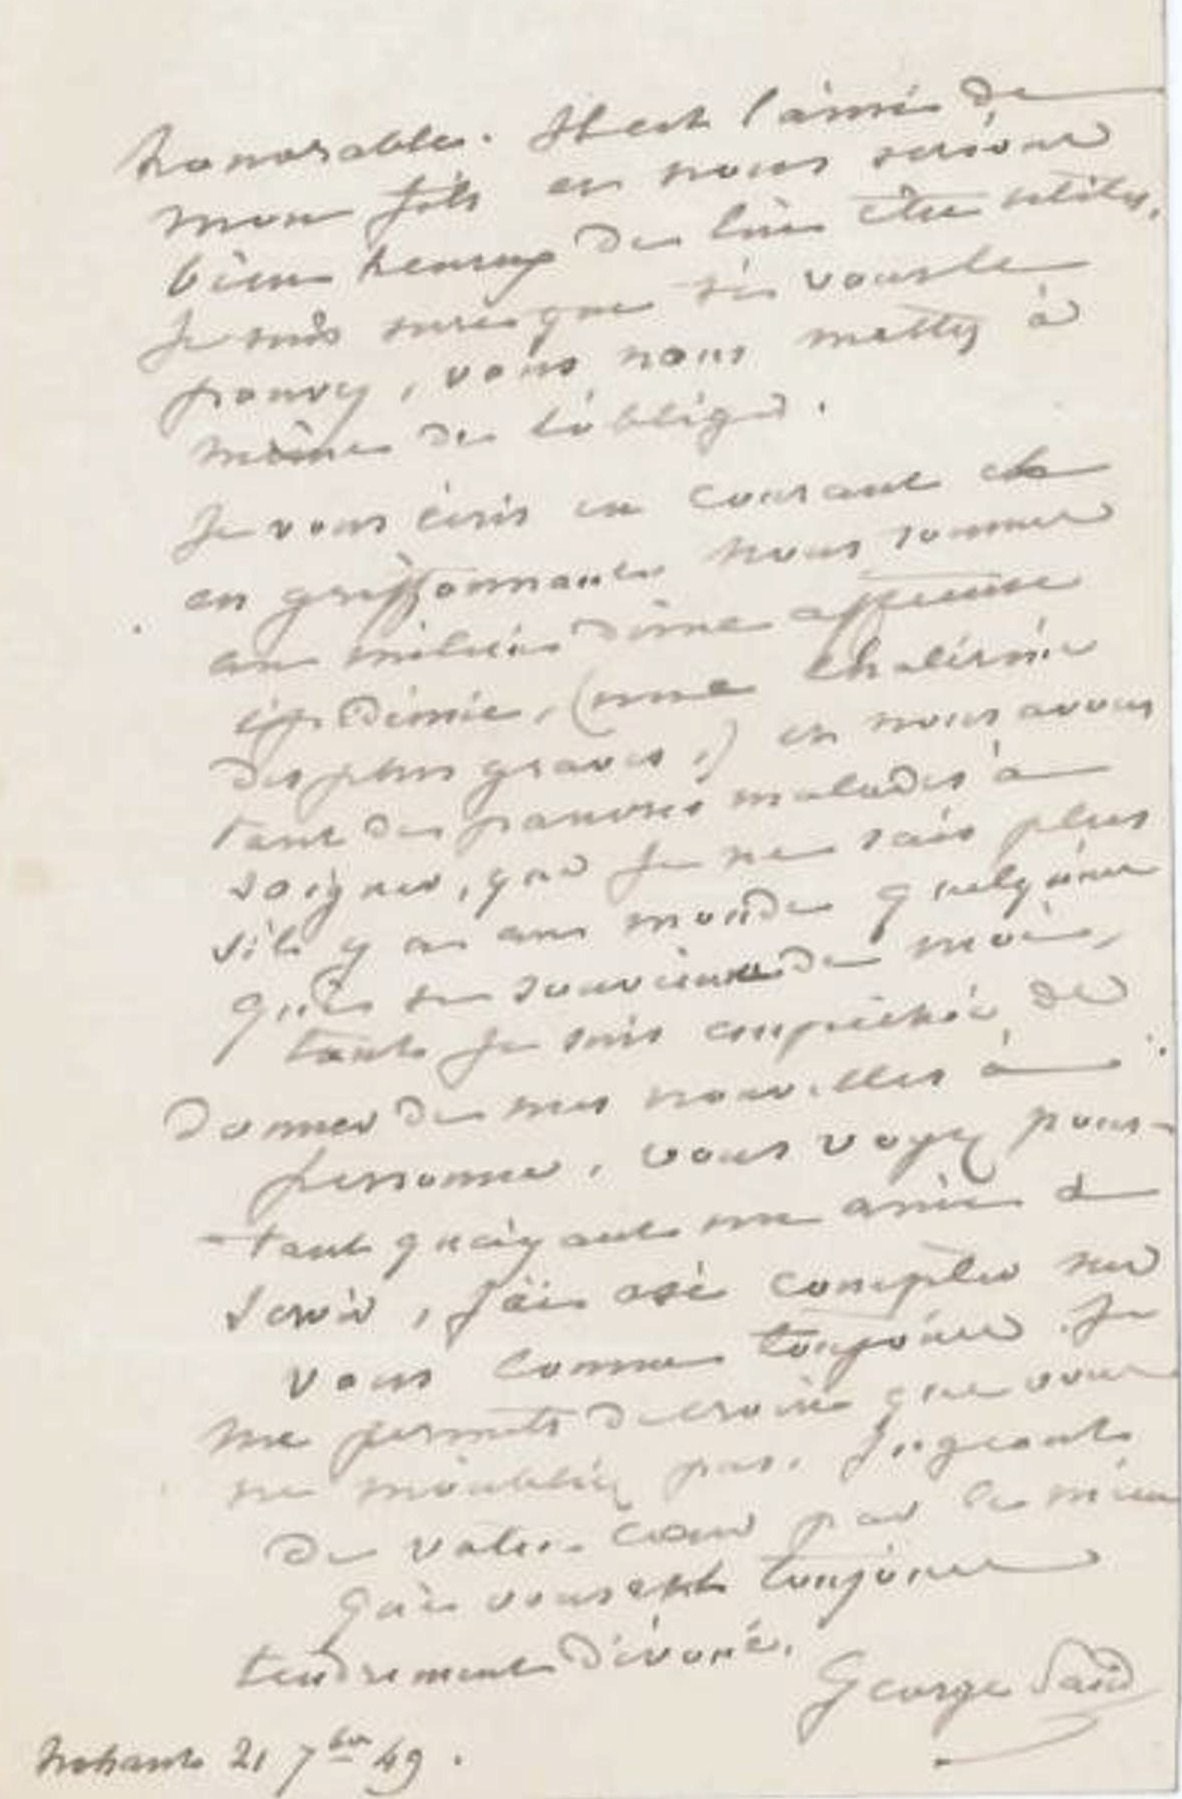 honorable. Il est l'ami de
mon fils et nous serions
bien heureux de lui être utiles.
Je suis sure que si vous le
pouvez, vous nous mettrez à
même de l'obliger.
Je vous écris en courant et
en griffonnant nous sommes
au milieu d'une affreuse
épidémie, (une cholérine
des plus graves,) et nous avons
tant de pauvres malades à
soigner, que je ne sais plus
s'il y a au monde quelqu'un
qui se souvienne de moi,
tant je suis empêchée de
donner de mes nouvelles à
personne, vous voyez pour-
-tant qu'ayant un ami à
servir, j'ai osé compter sur
vous comme toujours. Je
me permets de croire que vous
ne m'oubliez pas, jugeant
de votre coeur par le mien
qui vous est toujours
tendrement dévoué.
George Sand
Nohant 21 7bre 49.